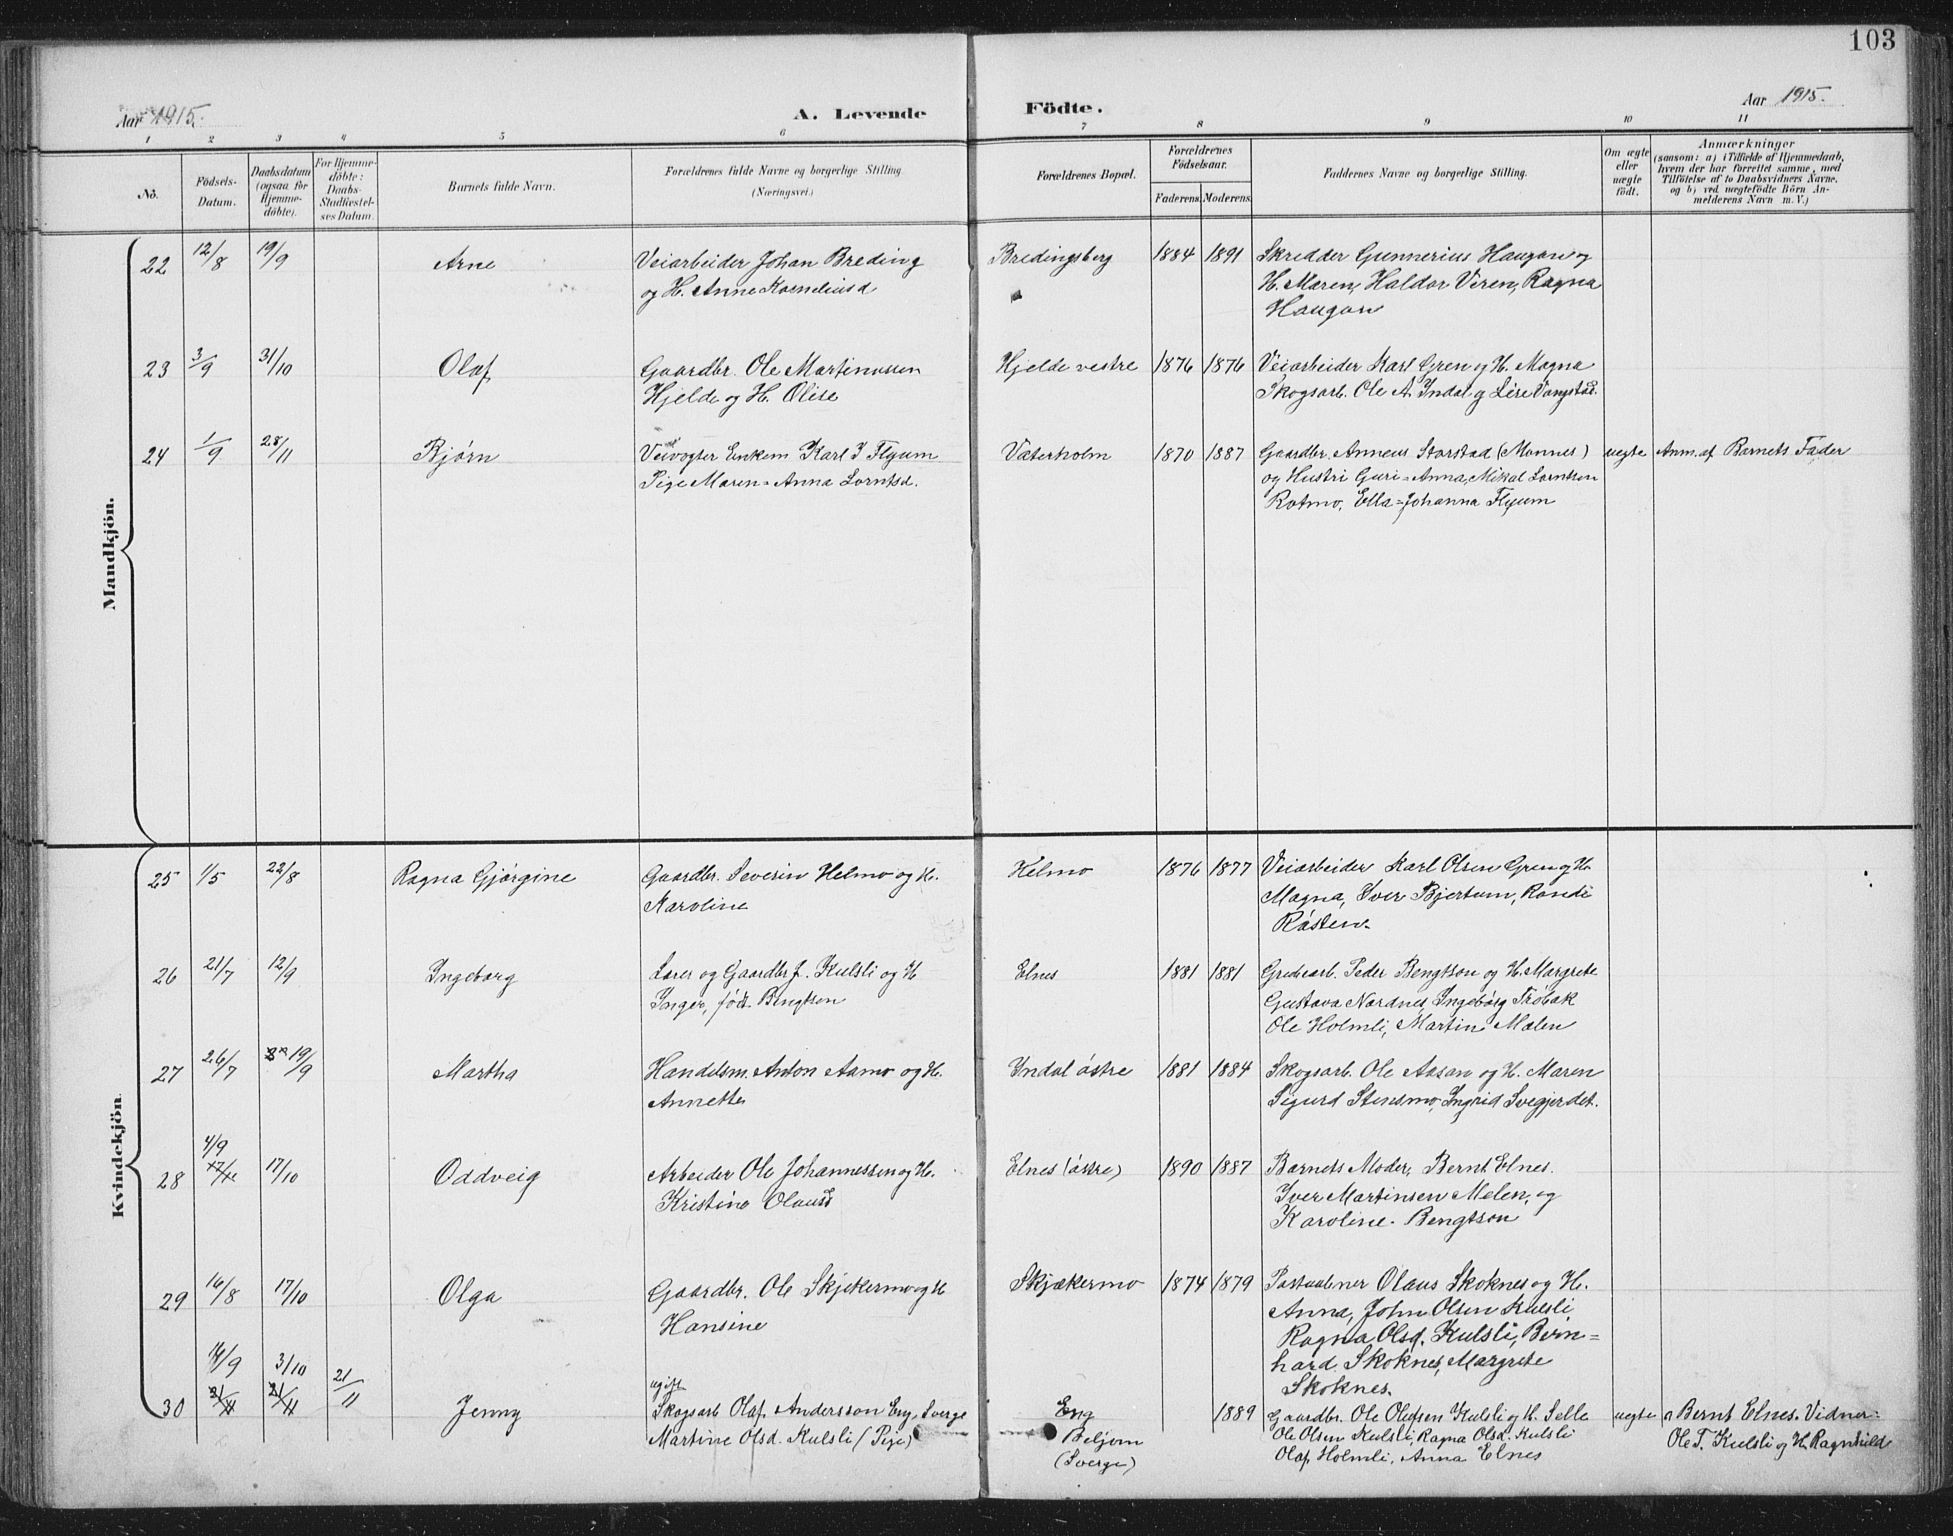 103
Aar 1915.
A. Levende Födte.
Aar 1915.
1 2 3 4 5 6 7 8 9 10 11
No.
Födsels-
Datum.
Daabsdatum
(ogsaa for
Hjemme-
döbte).
For Hjemme-
döbte:
Daabs-
Stadfæstel-
ses Datum.
Barnets fulde Navn.
Forældrenes fulde Navne og borgerlige Stilling
(Næringsvei.)
Forældrenes Bopæl.
Forældrenes
Födselsaar.
Faderens. Moderens.
Faddernes Navne og borgerlige Stilling.
Om ægte
eller
uægte
födt.
Anmærkninger
(saasom: a) i Tilfælde af Hjemmedaab,
hvem der har forrettet samme, med
Tilföielse af to Daabsvidners Navne,
og b) ved uægtefödte Börn An-
melderens Navn m. V.)
Mandkjön.
22 12/8 19/9 Arne Veiarbeider Johan Breding Bredingsberg 1884 1891 Skrædder Gunnerius Haugan og
og H. Anne Kornelusd H. Maren, Haldor Veren, Ragna
Haugan
23 3/9 31/10 Olaf Gaardbr. Ole Martinussen Hjelde vestre 1876 1876 Veiarbeider Karl Gren og H. Magna
Hjelde og H. Olise Skogsarb. Ole A. Indal og Lise Vangstad.
24 1/9 28/11 Bjørn Veivogter Enkem. Karl J Flyum Væterholm 1870 1887 Gaardbr. Anneus Storstad (Monnes) uegte Anm. af Barnets Fader
Pige Maren-Anna Lorntsd. og Hustri Guri-Anna, Mikal Lorntsen
Rotmo, Ella-Johanna Flyum
Kvindekjön.
25 1/5 22/8 Ragna Gjørgine Gaardbr. Severin Helmo og H. Helmo 1876 1877 Veiarbeider Karl Olsen Gren og H
Karoline Magna, Iver Bjertum, Randi
Råsten.
26 21/7 12/9 Ingeborg Lærer og Gaardbr J. Kulsli og H Elnes 1881 1881 Grubearb. Peder Bengtson og H. Margrete
Inger, født Bengtsen Gustava Nordnes, Ingeborg Trøbak
Ole Holmli, Martin Mælen
27 26/7 19/9 Martha Handelsm. Anton Aamo og H. Indal østre 1881 1884 Skogsarb. Ole Aasan og H. Maren
Annette Sigurd Stensmo, Ingrid Svegjerdet.
4/9
28 17/10 Oddveig Arbeider Ole Johannessen og H. Elnes (østre) 1890 1887 Barnets Moder, Bernt Elnes.
Kristine Olausd Iver Martinsen Melen, og
Karoline Bengtson
29 16/8 17/10 Olga Gaardbr. Ole Skjækermo og H Skjækermo 1874 1879 Postaabner Olaus Skoknes og H.
Hansine Anna, John Olsen Kulsli
Ragna Olsd. Kulsli, Bern-
hard Skoknes, Margrete
Skoknes.
14/9 3/10 ugift
30 21/11 21/11 21/11 Jenny Skogsarb Olaf Andersson Eng, Sverge Eng 1889 Gaardbr. Ole Olofsen Kulsli og H. Selle uegte Bernt Elnes. Vidner:
Martine Olsd. Kulsli (Pige) Beljom Ole Olsen Kulsli, Ragna Olsd. Kulsli Ole T. Kulsli og H. Ragnhild
(Sverge) Olaf Holmli, Anna Elnes